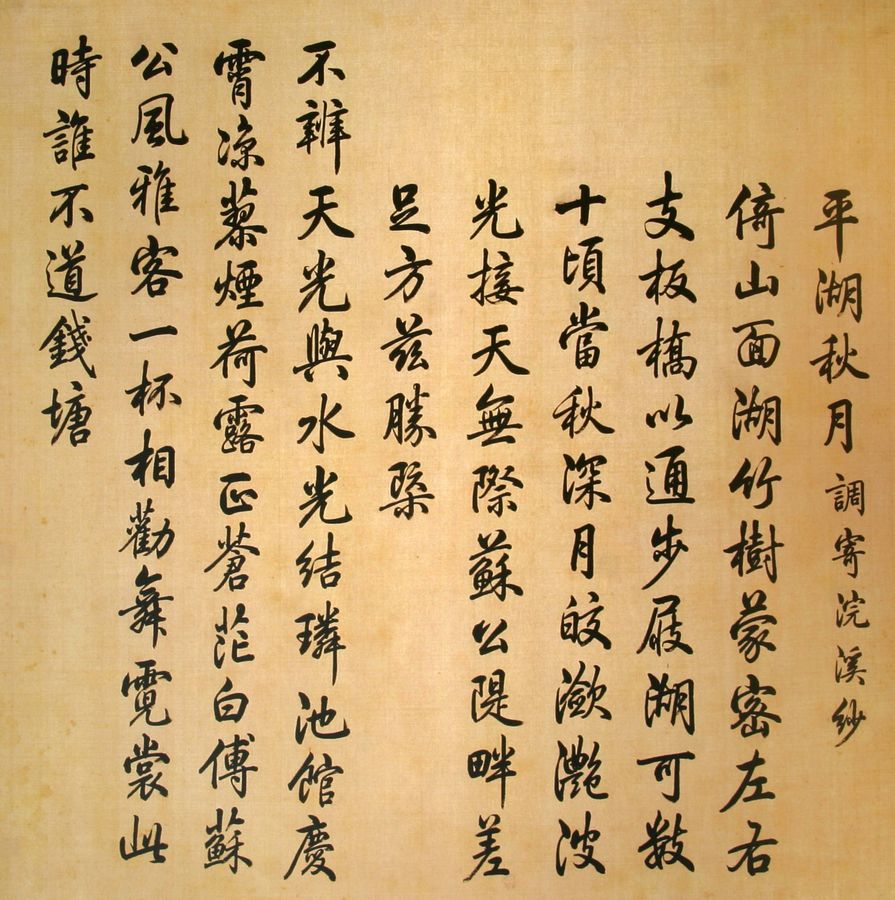 平湖秋月 調寄浣溪紗
倚山面湖竹樹蒙密左右
支板橋以通步屐湖可数
十頃當秋深月皎瀲灔波
光接天無際蘇公隄畔差
足方茲勝槩
不辨天光與水光結璘池館慶
霄凉蓼煙荷露正蒼茫白傅蘇
公風雅客一杯相勸舞霓裳此
時誰不道錢塘